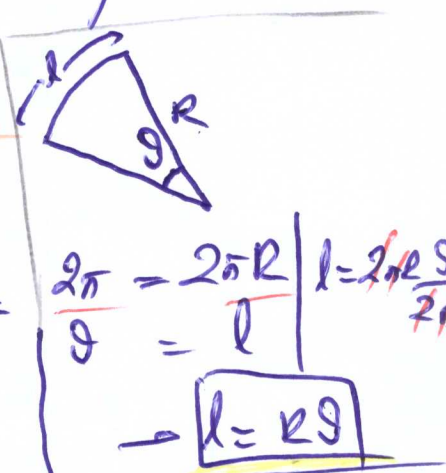 l
R
ϑ
2π/ϑ = 2πR/l | l = 2πR ϑ/2π
→ l = Rϑ